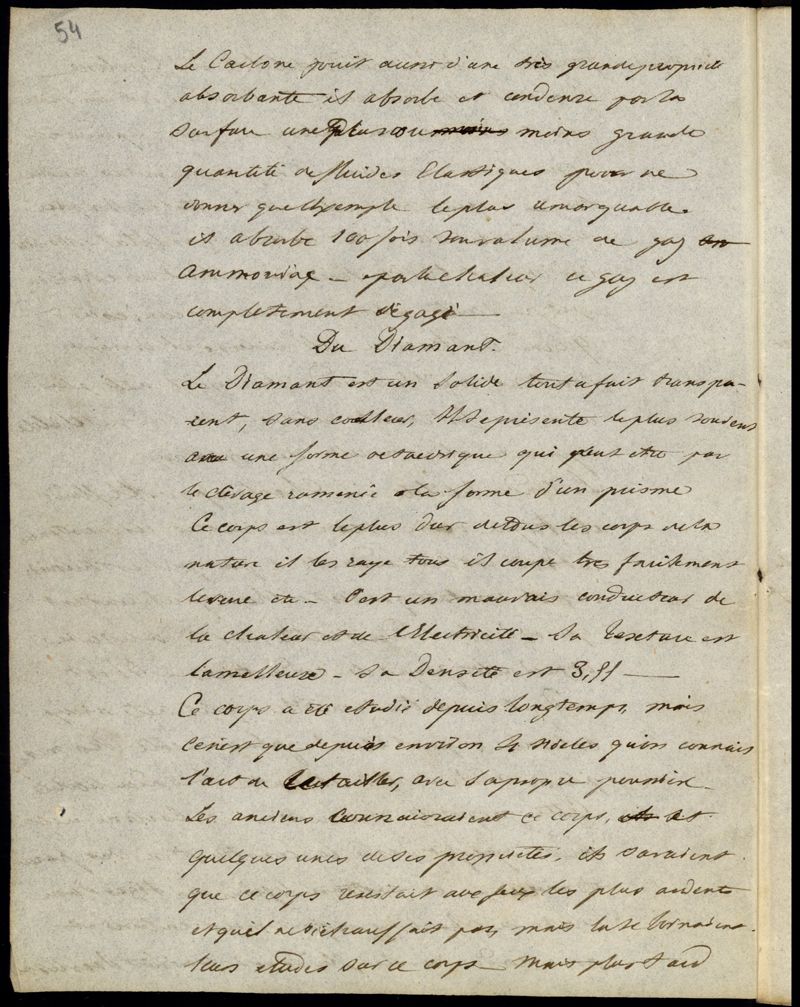 54
Le Carbone jouit aussi d'une très grande propriété
absorbante il absorbe et condense par sa
surface une plus ou moins moins grande
quantité de fluides Elastiques pour ne
donner que l'Exemple le plus remarquable.
il absorbe 100 fois son volume de gaz an
ammoniac — par la chaleur ce gaz est
completement dégagé —
Du Diamant.
Le Diamant est un solide tout a fait transpa-
rent, sans couleur, Il se présente le plus souvent
une forme octaedrique qui peut etre par
le clivage ramenée a la forme d'un prisme
Ce corps est le plus dur de tous les corps de la
nature il les raye tous il coupe très facilement
le verre etc — C'est un mauvais conducteur de
la chaleur et de l'Electricité — Sa texture est
lamelleuse — Sa Densité est 3,55 —
Ce corps a été etudié depuis longtemps, mais
ce n'est que depuis environ 4 siecles qu'on connait
l'art de le tailler, avec sa propre poussiere.
Les anciens connaissaient ce corps, et
quelques unes de ses proprietés, ils savaient
que ce corps resistait aux feux les plus ardents
et qu'il ne s'echauffait pas, mais la se bornaient
leurs etudes sur ce corps mais plus tard